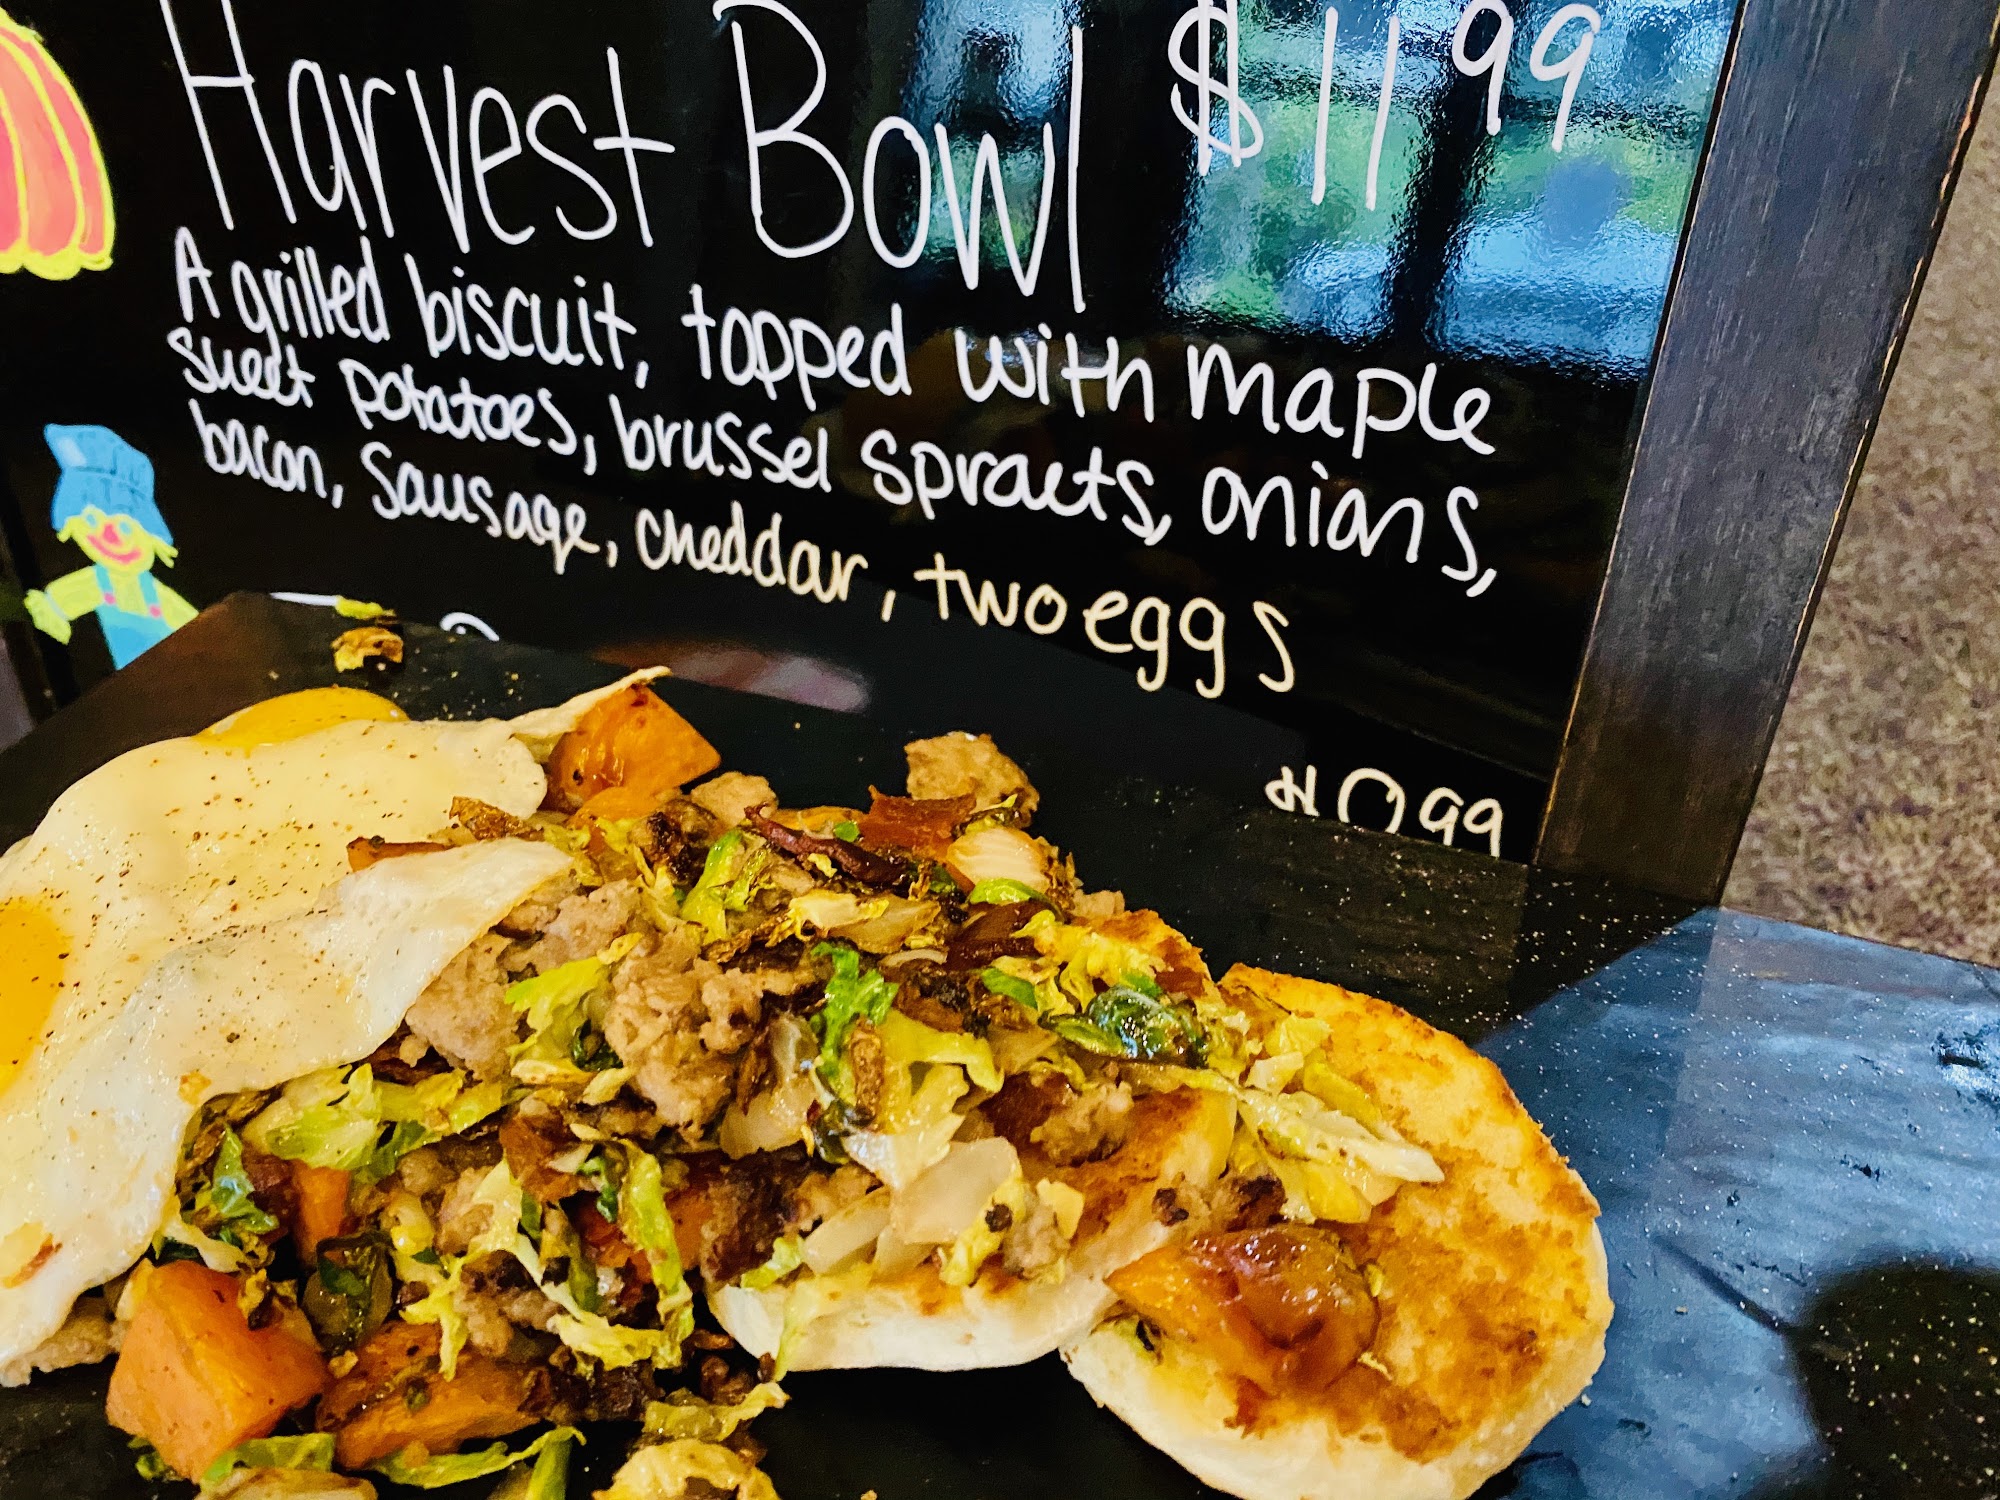 Harvest Bowl $11.99
A grilled biscuit, topped with maple
sweet potatoes, brussel sprouts, onions,
bacon, sausage, cheddar, two eggs